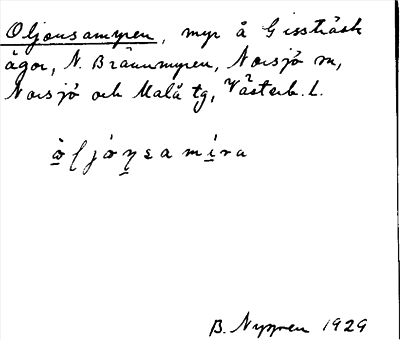 Oljonsamyren, myr å Gissträsk
ägor, N. Brännmyren, Norsjö sn,
Norsjö och Malå tg, Västerb. l.
B. Nygren 1929